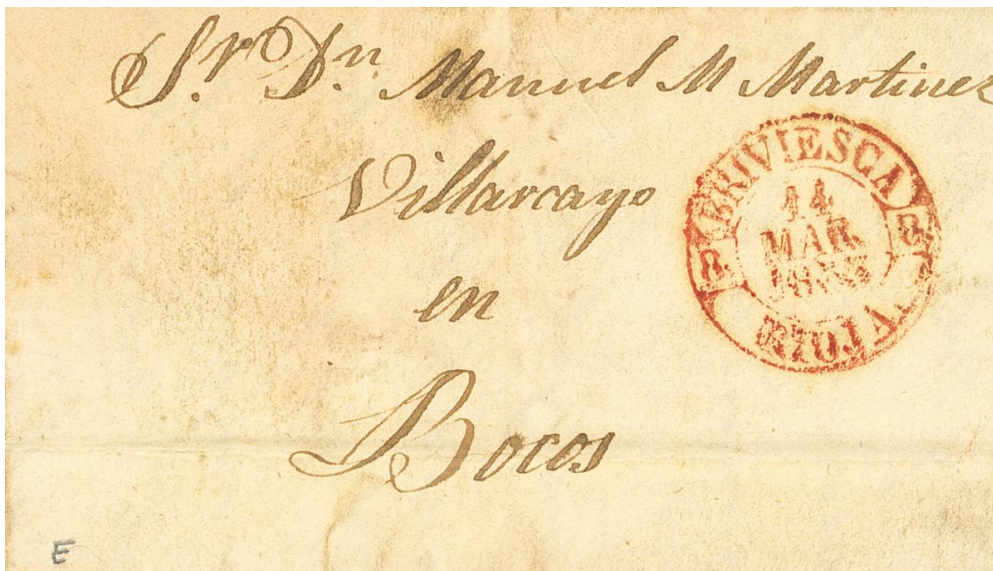 Sr. Dn. Manuel M Martinez
Villarcayo
en
Bocos
BRIVIESCA
14
MAR
RIOJA
E